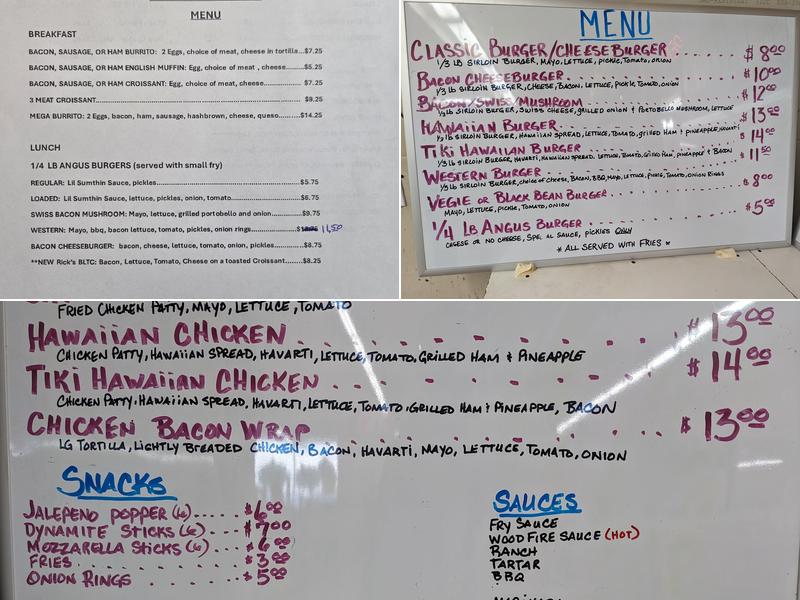 MENU
BREAKFAST
BACON, SAUSAGE, OR HAM BURRITO: 2 Eggs, choice of meat, cheese in tortilla...$7.25
BACON, SAUSAGE, OR HAM ENGLISH MUFFIN: Egg, choice of meat , cheese......$5.25
BACON, SAUSAGE, OR HAM CROISSANT: Egg, choice of meat, cheese......$7.25
3 MEAT CROISSANT......$9.25
MEGA BURRITO: 2 Eggs, bacon, ham, sausage, hashbrown, cheese, queso......$14.25
LUNCH
1/4 LB ANGUS BURGERS (served with small fry)
REGULAR: Lil Sumthin Sauce, pickles......$5.75
LOADED: Lil Sumthin Sauce, lettuce, pickles, onion, tomato......$6.75
SWISS BACON MUSHROOM: Mayo, lettuce, grilled portobello and onion......$9.75
WESTERN: Mayo, bbq, bacon lettuce, tomato, pickles, onion rings......$ 11.50
BACON CHEESEBURGER: bacon, cheese, lettuce, tomato, onion, pickles......$8.75
**NEW Rick's BLTC: Bacon, Lettuce, Tomato, Cheese on a toasted Croissant......$8.25
MENU
CLASSIC BURGER/CHEESEBURGER . . . . $8.00
1/3 LB SIRLOIN BURGER, MAYO, LETTUCE, PICKLE, TOMATO, ONION
BACON CHEESEBURGER . . . . $10.00
1/3 LB SIRLOIN BURGER, CHEESE, BACON, LETTUCE, PICKLE, TOMATO, ONION
BACON/SWISS/MUSHROOM . . . . $12.00
1/3 LB SIRLOIN BURGER, SWISS CHEESE, GRILLED ONION & PORTOBELLO MUSHROOM, LETTUCE
HAWAIIAN BURGER . . . . $13.00
1/3 LB SIRLOIN BURGER, HAWAIIAN SPREAD, LETTUCE, TOMATO, GRILLED HAM & PINEAPPLE, HAVARTI
TIKI HAWAIIAN BURGER . . . . $14.00
1/3 LB SIRLOIN BURGER, HAVARTI, HAWAIIAN SPREAD, LETTUCE, TOMATO, GRILLED HAM, PINEAPPLE & BACON
WESTERN BURGER . . . . $11.50
1/3 LB SIRLOIN BURGER, CHOICE OF CHEESE, BACON, BBQ, MAYO, LETTUCE, PICKLE, TOMATO, ONION RINGS
VEGIE OR BLACK BEAN BURGER . . . . $8.00
MAYO, LETTUCE, PICKLE, TOMATO, ONION
1/4 LB ANGUS BURGER . . . . $5.00
CHEESE OR NO CHEESE, SPECIAL SAUCE, PICKLES ONLY
* ALL SERVED WITH FRIES *
FRIED CHICKEN PATTY, MAYO, LETTUCE, TOMATO
HAWAIIAN CHICKEN . . . . $13.00
CHICKEN PATTY, HAWAIIAN SPREAD, HAVARTI, LETTUCE, TOMATO, GRILLED HAM & PINEAPPLE
TIKI HAWAIIAN CHICKEN . . . . $14.00
CHICKEN PATTY, HAWAIIAN SPREAD, HAVARTI, LETTUCE, TOMATO, GRILLED HAM & PINEAPPLE, BACON
CHICKEN BACON WRAP . . . . $13.00
LG TORTILLA, LIGHTLY BREADED CHICKEN, BACON, HAVARTI, MAYO, LETTUCE, TOMATO, ONION
SNACKS
JALEPENO POPPER (6)..... $6.00
DYNAMITE STICKS (6).... $7.00
MOZZARELLA STICKS (6) . $6.00
FRIES . . . . $3.00
ONION RINGS . . . . $5.00
SAUCES
FRY SAUCE
WOOD FIRE SAUCE (HOT)
RANCH
TARTAR
BBQ